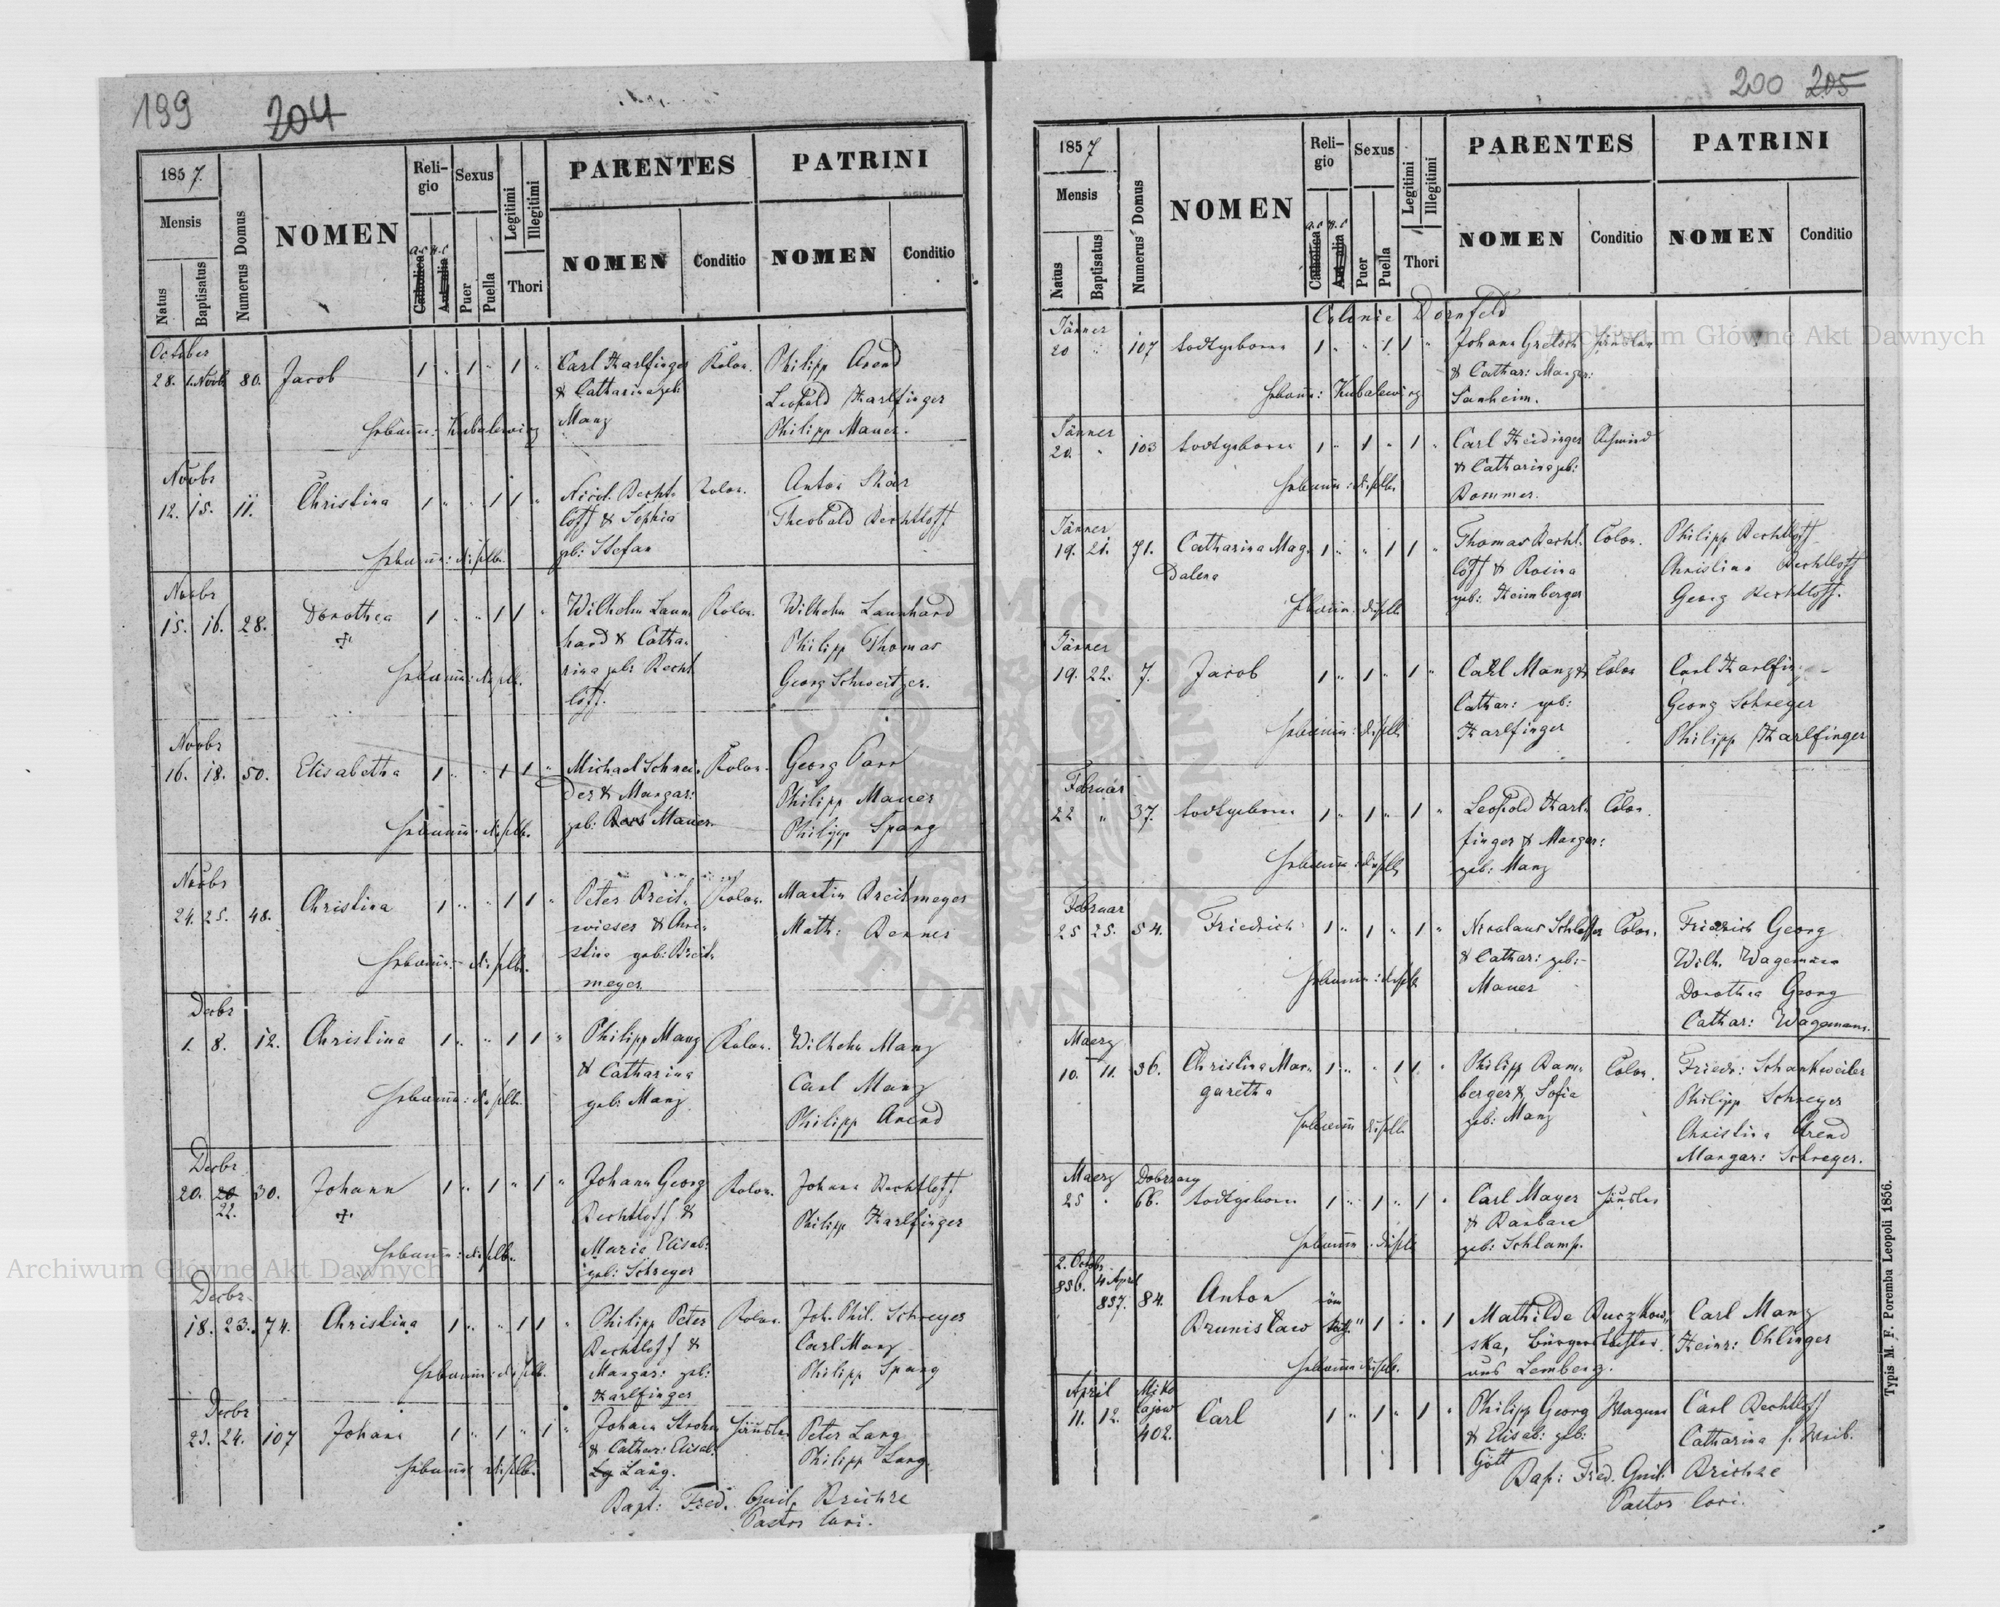 199 204
1857.
Mensis
Natus
Baptisatus
Numerus Domus
NOMEN
Religio
Catholica
Sexus
Puer
Puella
Legitimi
Illegitimi
Thori
PARENTES
NOMEN
Conditio
PATRINI
NOMEN
Conditio
October
28. 1. Novb 80. Jacob 1 " 1 " 1 " Carl Karlfinger Kolon. Philipp Arend
& Catharina geb: Leopold Karlfinger
Hebamm: Kubalewicz Manz Philipp Mauer.
Novbr
12. 15. 11. Christina 1 " " 1 1 " Nicol. Becht- Kolon. Anton Skär
loff & Sophia Theobald Bechtloff
Hebamm: dieselbe. geb: Stefan
Novbr
15. 16. 28. Dorothea 1 " " 1 1 " Wilhelm Laun- Kolon. Wilhelm Launhard
hard & Catha- Philipp Thomas
Hebamm: dieselb. rina geb: Becht Georg Schweitzer.
loff.
Novbr
16. 18. 50. Elisabetha 1 " " 1 1 " Michael Schnei- Kolon. Georg Parr
der & Margar: Philipp Mauer
Hebamm: dieselb. geb: Mauer. Philipp Spang
Novbr
24. 25. 48. Christina 1 " " 1 1 " Peter Breit- Kolon. Martin Breitmeyer
wieser & Chri- Math: Benner
Hebamm: dieselb. stina geb: Breit-
meyer
Decbr
1. 8. 12. Christina 1 " " 1 1 " Philipp Manz Kolon. Wilhelm Manz
& Catharina Carl Manz
Hebamm: dieselb. geb: Manz Philipp Arend
Decbr
20. 20 30. Johann 1 " 1 " 1 " Johann Georg Kolon. Johann Bechtloff
22. Bechtloff & Philipp Karlfinger
Hebamm: dieselb. Maria Elisab:
geb: Schreyer
Decbr.
18. 23. 74. Christina 1 " " 1 1 " Philipp Peter Kolon. Joh. Phil. Schreyer
Bechtloff & Carl Manz
Hebamm: dieselb. Margar: geb: Philipp Spang
Karlfinger
Decbr
23. 24. 107 Johann 1 " 1 " 1 " Johann Häusler Peter Lang
& Cathar: Elisab: Philipp Lang.
Hebamm dieselb. Lang.
Bapt: Fred. Guil. Brichze
Pastor loci.
200 205
1857
Mensis
Natus
Baptisatus
Numerus Domus
NOMEN
Religio
Catholica
Sexus
Puer
Puella
Legitimi
Illegitimi
Thori
PARENTES
NOMEN
Conditio
PATRINI
NOMEN
Conditio
Colonie Dornfeld
Jänner
20 " 107 todtgeboren 1 " " 1 1 " Johann Gretsch Häusler
& Cathar: Margar:
Hebamm: Kubalewicz Sanheim.
Jänner
20. " 103 todtgeboren 1 " 1 " 1 " Carl Heidinger Schmied
& Catharina geb:
Hebamm: dieselb. Bommer.
Jänner
19. 21. 71. Catharina Mag- 1 " " 1 1 " Thomas Becht- Colon. Philipp Bechtloff
dalena loff & Rosina Christina Bechtloff
Hebamm: dieselb. geb: Heimberger Georg Bechtloff.
Jänner
19. 22. 7. Jacob 1 " 1 " 1 " Carl Manz & Colon Carl Karlfin
Cathar: geb: Georg Schreyer
Hebamm: dieselb. Karlfinger Philipp Karlfinger
Februar
22 " 37. todtgeboren 1 " 1 " 1 " Leopold Karl- Colon.
finger & Margar:
Hebamm: dieselb. geb: Manz
Februar
25 25. 54. Friedrich 1 " 1 " 1 " Nicolaus Schlosser Colon. Friedrich Georg
& Cathar: geb: Wilh. Wagemann
Hebamm: dieselb. Mauer Dorothea Georg
Cathar: Wagemann.
Maerz
10. 11. 36. Christina Mar- 1 " " 1 1 " Philipp Bam- Colon. Friedr: Schankweiler
garetha berger & Sofia Philipp Schreyer
Hebamm dieselb. geb: Manz Christina Arend
Margar: Schreyer.
Maerz Dobrzany
25 " 66. todtgeboren 1 " 1 " 1 " Carl Mayer Häusler
& Barbara
Hebamm: dieselb. geb: Schlamp.
2. Octobr
856. 4 April
857. 84. Anton röm 1 " " 1 Mathilde Buczkow- Carl Manz
Brunislaw kath. ska, Bürgerstochter Heinr: Ohlinger
Hebamm dieselb. aus Lemberg.
April Miko
11. 12. lajow
402. Carl 1 " 1 " 1 " Philipp Georg Wagner Carl Bechtloff
& Elisab: geb: Catharina s. Weib.
Gött
Bap: Fred. Guil: Brichze
Pastor loci.
Typis M. F. Poremba Leopoli 1856.
Archiwum Główne Akt Dawnych
Archiwum Główne Akt Dawnych